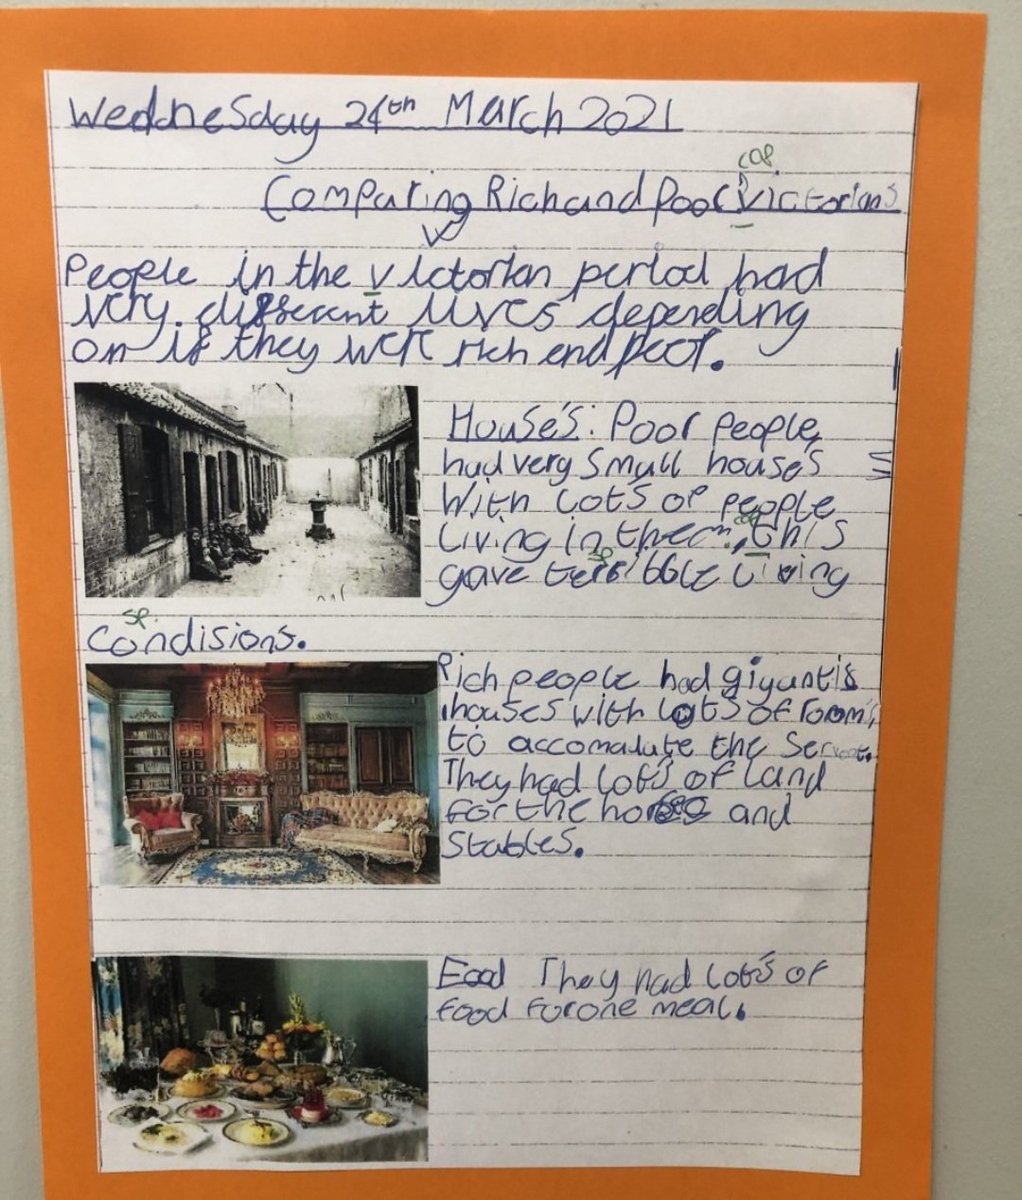 Wednesday 24th March 2021
cap
Comparing Rich and Poor Victorians
People in the victorian period had
very different lives depending
on if they were rich end poor.
House's: Poor people,
had very small house's
With Lots of people
Living in them., this
sp
gave terribble living
sp.
condisions.
Rich people had giyantis
houses with lots of room's
to accomadate the servant.
They had lot's of land
for the horses and
Stables.
Food They had lot's of
food for one meal.